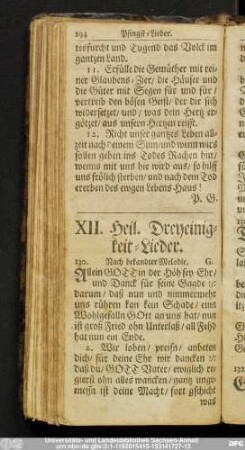 294 Pfingst-Lieder.
tesfurcht und Tugend das Volck im
gantzen Land.
11. Erfülle die Gemüther mit rei-
ner Glaubens-Zier/ die Häuser und
die Güter mit Segen für und für/
vertreib den bösen Geist/ der dir sich
widersetzet/ und/ was dein Hertz er-
götzet/ aus unsern Hertzen reist.
12. Richt unser gantzes Leben all-
zeit nach deinem Sinn/ und wenn wirs
sollen geben ins Todes Rachen hin/
wenns mit uns hie wird aus/ so hilff
uns frölich sterben/ und nach dem Tod
ererben des ewgen Lebens Haus!
P. G.
XII. Heil. Dreyeinig-
keit-Lieder.
230. Nach bekandter Melodie. G.
Allein GOTT in der Höh sey Ehr/
und Danck für seine Gnade
darum/ daß nun und nimmermehr
uns rühren kan kein Schade/ einn
Wohlgefalln GOtt an uns hat/ nun
ist groß Fried ohn Unterlaß/ all Fehd
hat nun ein Ende.
2. Wir loben/ preisn/ anbeten
dich/ für deine Ehr wir dancken
daß du/ GOTT Vater/ ewiglich re-
gierst ohn alles wancken/ gantz unge-
messn ist deine Macht/ fort gschicht
was
Universitäts- und Landesbibliothek Sachsen-Anhalt